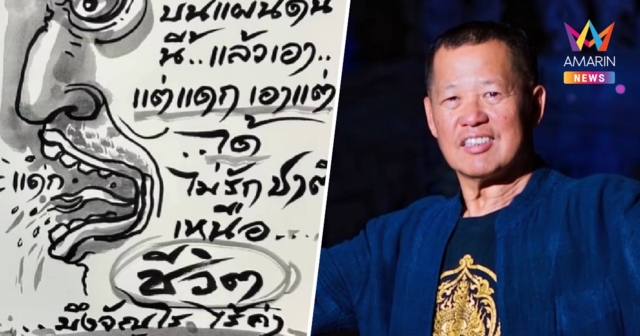 บนแผ่นดิน
นี้..แล้วเอา..
แต่แดก เอาแต่
..ได้
แด๊ก
ไม่รักชาติ
เหนือ....
ชีวิต
มึงจัณไร ไร้ค่า
AMARIN
NEWS